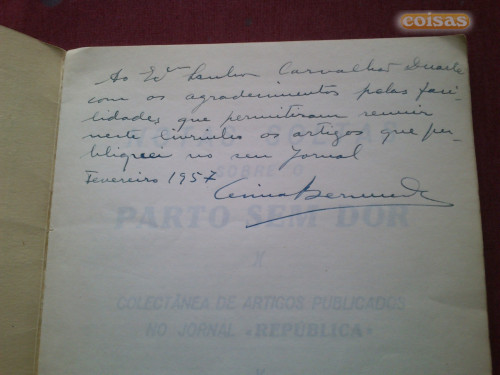 coisas
Ao Exmo Senhor Carvalhão Duarte
com os agradecimentos pelas faci-
lidades que permitiram reunir
neste livrinho os artigos que pu-
bliquei no seu Jornal
Fevereiro 1957
SOBRE O
PARTO SEM DOR
COLECTÂNEA DE ARTIGOS PUBLICADOS
NO JORNAL «REPÚBLICA»